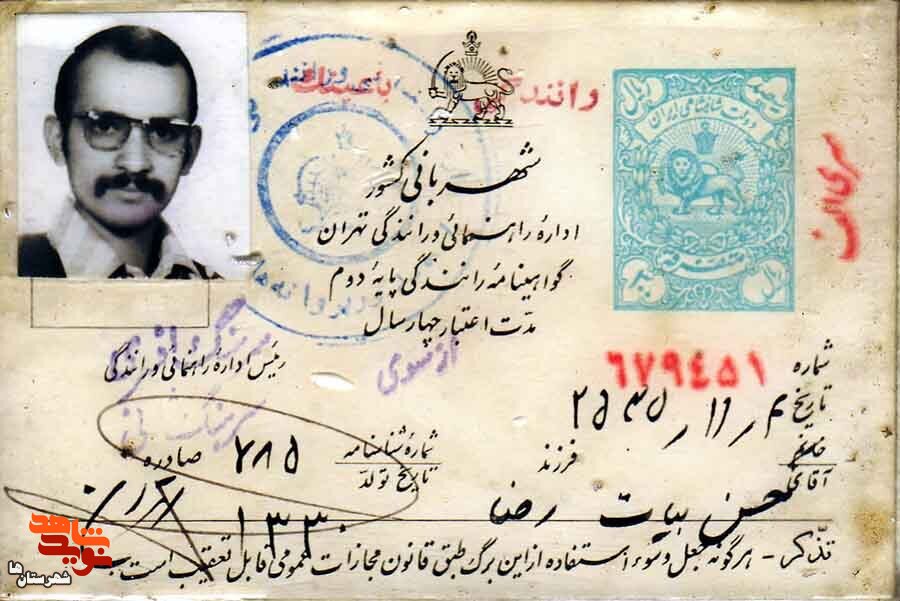 رانندگی با عینک
شهربانی کشور
اداره راهنمائی و رانندگی تهران
گواهینامه رانندگی پایه دوم
مدت اعتبار چهار سال
دولت شاهنشاهی ایران
متفرقه
ریال
سری الف
رئیس اداره راهنمائی و رانندگی
از سوی
سرهنگ
شماره ٦٧٩٤٥١
تاریخ ۴ ر ۱۱ ر ۲۵۳۵
خانم
آقای محسن بیات
فرزند رضا
شماره شناسنامه ۲۸۵ صادره
تاریخ تولد ۱۳۳۰
تذکر - هرگونه جعل و سوء استفاده از این برگ طبق قانون مجازات عمومی قابل تعقیب است
نوید شاهد
شهرستان‌ها